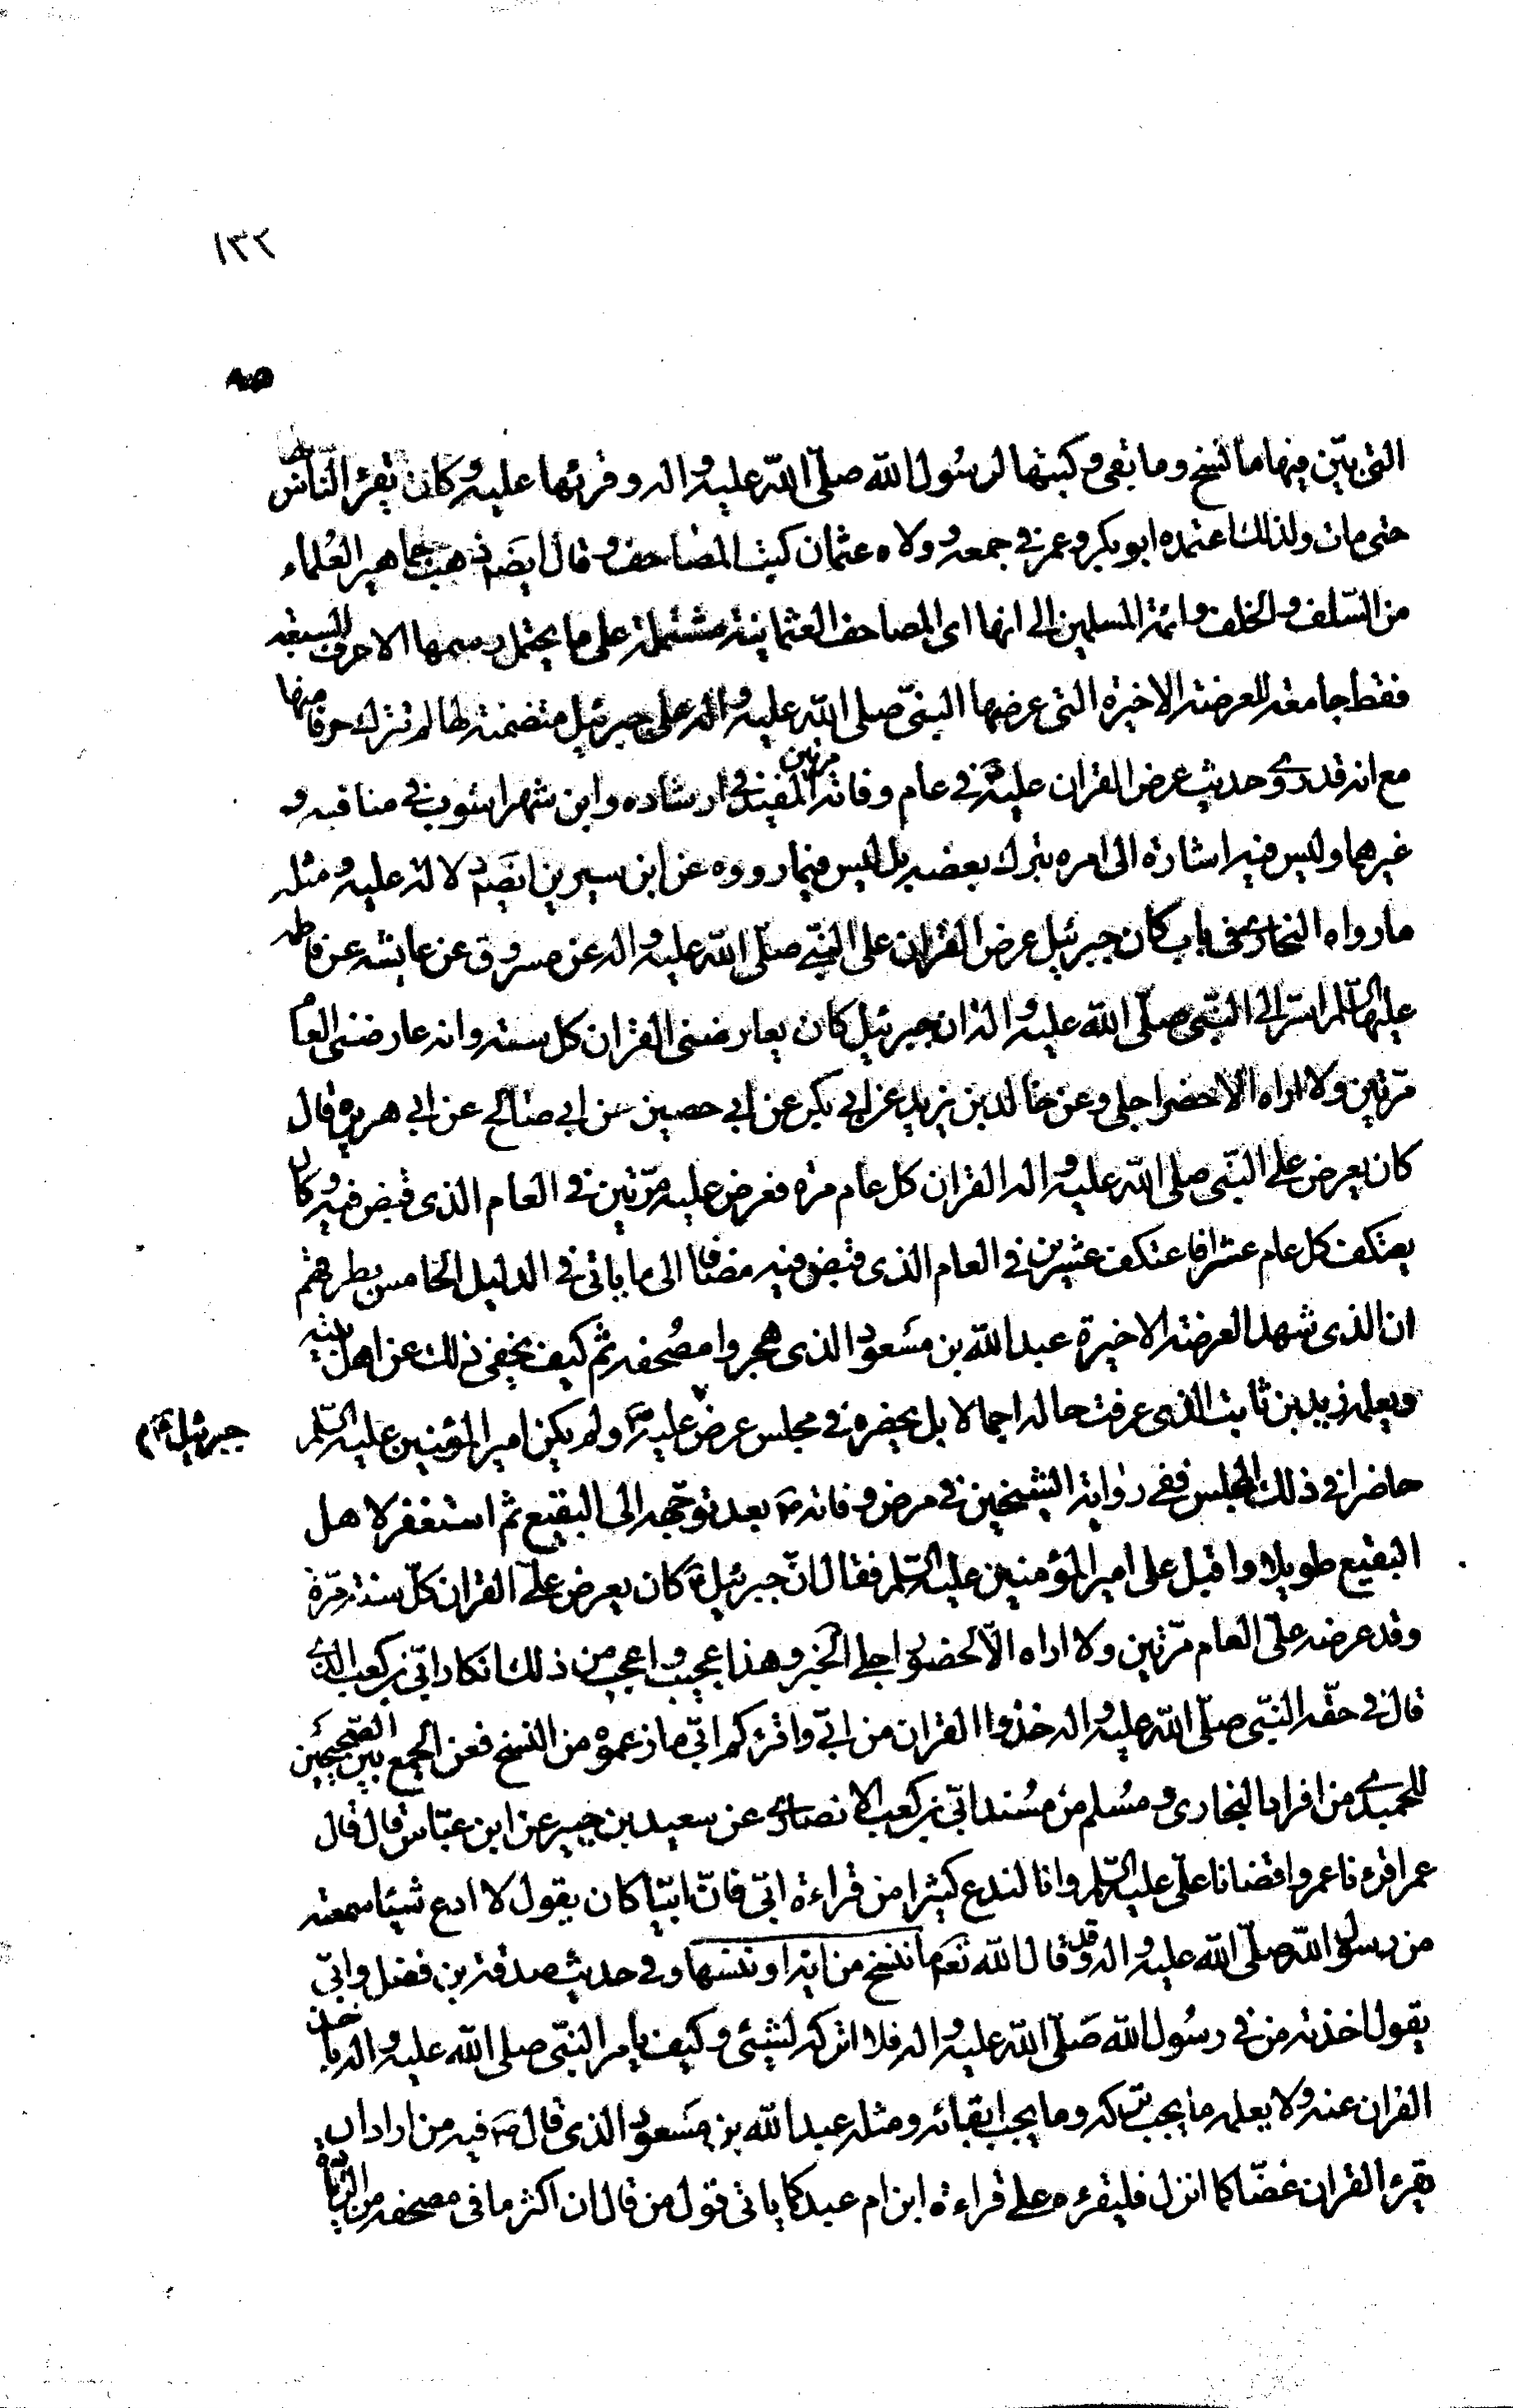 ١٣٢
التى بيّن فيها ما نسخ وما بقى وكتبها لرسول الله صلّى الله عليه واله وقرئها عليه وكان يقرء النّاس بها
حتى مات ولذلك اعتمده ابو بكر وعمر فى جمعه وولاه عثمان كتب المصاحف وقال ايضا ذهب جماهير العلماء
من السّلف والخلف وائمة المسلمين الى انها اى المصاحف العثمانية مشتملة على ما يحتمل رسمها الاحرف السبعة
فقط جامعة للعرضة الاخيرة التى عرضها النبىّ صلى الله عليه واله على جبرئيل متضمنة لها لم تترك حرفا منها
مع انه قد روى حديث عرض القران عليه ص فى عام وفاته مرتين المفيد فى ارشاده وابن شهراشوب فى مناقبه و
غيرهما وليس فيه اشارة الى امره بترك بعضه بل ليس فيما رووه عن ابن سيرين ايضا دلالة عليه ومثله
ما رواه البخارى فى باب كان جبرئيل عرض القران على النبىّ صلّى الله عليه واله عن مسروق عن عايشه عن فاطمه
عليها السّلم اسر الى النبىّ صلّى الله عليه واله ان جبرئيل كان يعارضنى القران كل سنة وانه عارضنى العام
مرّتين ولا اراه الا حضر اجلى وعن خالد بن يزيد عن ابى بكر عن ابى حصين عن ابى صالح عن ابى هريرة قال
كان يعرض على النبّى صلى الله عليه واله القران كل عام مرة فعرض عليه مرّتين فى العام الذى قبض فيه وكان
يعتكف كل عام عشرا فاعتكف عشرين فى العام الذى قبض فيه مضافا الى ما ياتى فى الدليل الخامس بطرقهم
ان الذى شهد العرضة الاخيرة عبد الله بن مسعود الذى هجروا مصحفه ثم كيف يخفى ذلك عن اهل بيته
ويعلمه زيد بن ثابت الذى عرفت حاله اجمالا بل يحضره فى مجلس عرض عليه ص ولم يكن امير المؤمنين عليه السّلم
جبرئيل ع م
حاضرا فى ذلك المجلس ففى رواية الشيخين فى مرض وفاته ص بعد توجّهه الى البقيع ثم استغفر لاهل
البقيع طويلا واقبل على امير المؤمنين عليه السّلم فقال انّ جبرئيل ع كان يعرض علىّ القران كلّ سنة مرّة
وقد عرضه علىّ العام مرّتين ولا اراه الّا لحضور اجلى الخبر وهذا عجيب واعجب من ذلك انكار ابىّ بن كعب الذى
قال فى حقّه النبّى صلّى الله عليه واله خذوا القران من ابىّ واقرئكم ابىّ ما زعموه من النسخ فعن الجمع بين الصحيحين
للحميدى من افراد البخارى ومسلم من مسند ابىّ بن كعب الانصارى عن سعيد بن جبير عن ابن عبّاس قال قال
عمر اقرءنا عمرو اقضانا علىّ عليه السّلم وانا لندع كثيرا من قراءة ابىّ فانّ ابيّا كان يقول لا ادع شيئا سمعته
من رسول الله صلّى الله عليه واله وقد قال الله تعم ما ننسخ من اية او ننسها وفى حديث صدقة بن فضل وابىّ
يقول اخذته من فى رسول الله صلّى الله عليه واله فلا اتركه لشيئى وكيف يامر النبّى صلى الله عليه واله باخذ
القران عنه ولا يعلمه ما يجب تركه وما يجب ابقائه ومثله عبد الله بن مسعود الذى قال ص فيه من اراد ان
يقرء القران غضّا كما انزل فليقرءه على قراءة ابن ام عبد كما ياتى قول من قال ان اكثر ما فى مصحفه من الزيادة